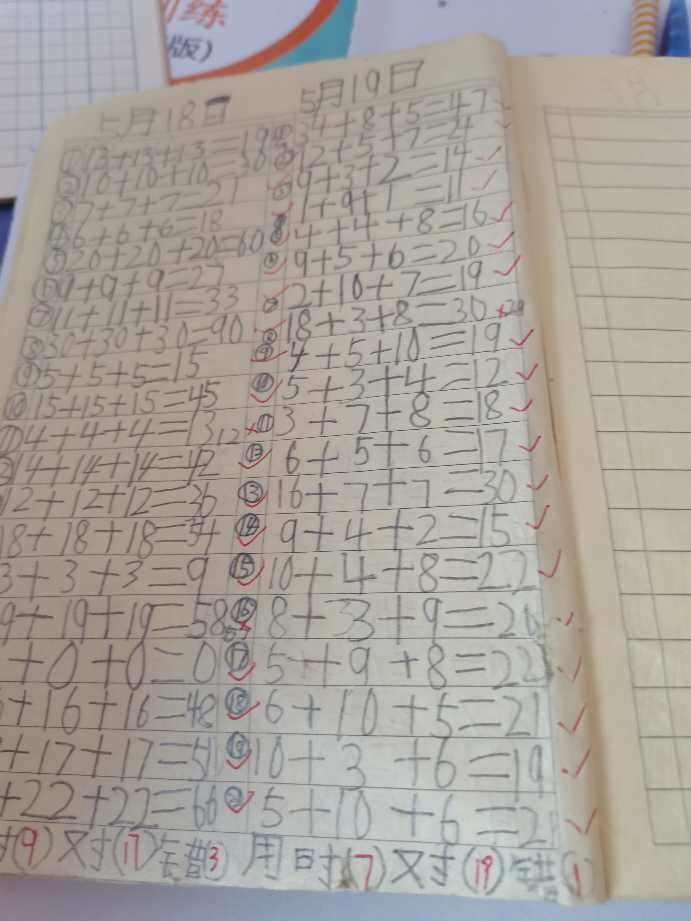 练
版)
5月18日
①13+13+13=
②10+10+10=30
③7+7+7=21
④6+6+6=18
⑤20+20+20=60
⑥9+9+9=27
⑦11+11+11=33
⑧30+30+30=90
⑨5+5+5=15
⑩15+15+15=45
⑪4+4+4=13 12
14+14+14=42
12+12+12=36
18+18+18=54
3+3+3=9
9+19+19=58
+0+0=0
+16+16=48
+17+17=51
+22+22=66
时(9)对(17)错(3)
5月19日
34+8+5=47
12+5+7=24
9+3+2=14
1+9+1=11
4+4+8=16
9+5+6=20
⑦2+10+7=19
⑧18+3+8=30 29
⑨4+5+10=19
⑩5+3+4=12
⑪3+7+8=18
⑫6+5+6=17
⑬16+7+7=30
⑭9+4+2=15
⑮10+4+8=22
⑯8+3+9=20
⑰5+9+8=22
⑱6+10+5=21
⑲10+3+6=19
⑳5+10+6=21
用时(7)对(19)错(1)